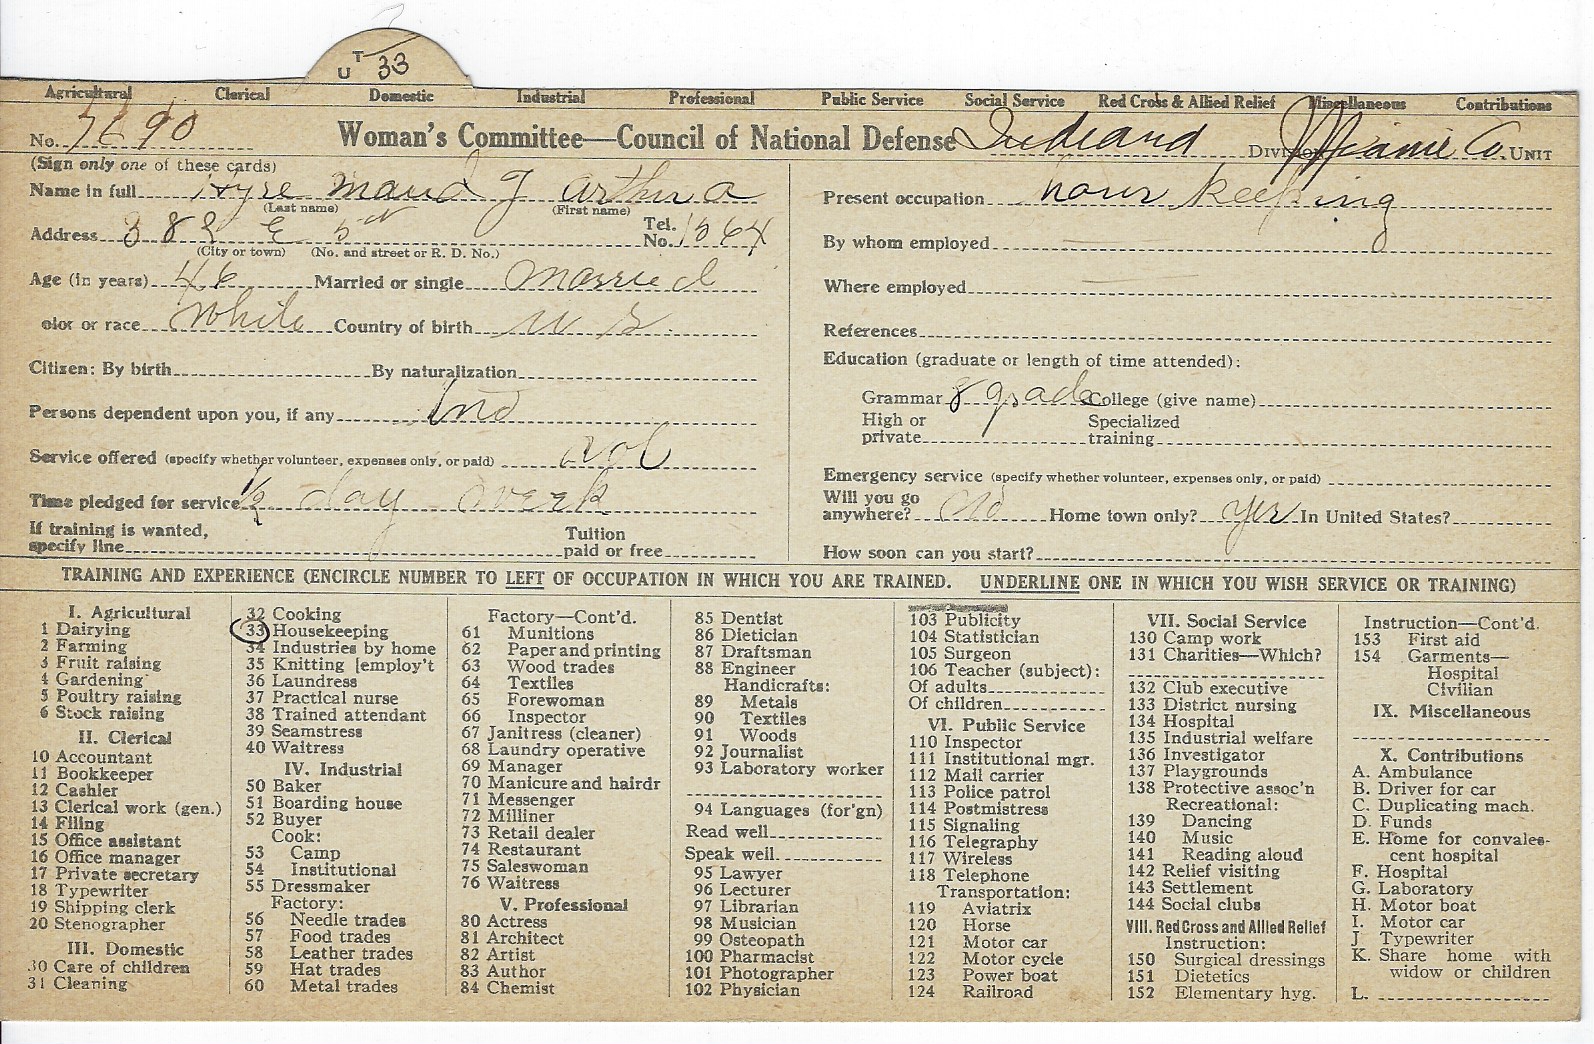 U T 33
Agricultural Clerical Domestic Industrial Professional Public Service Social Service Red Cross & Allied Relief Miscellaneous Contributions
No. 7690 Woman's Committee—Council of National Defense Indiana Division Miami Co. Unit
(Sign only one of these cards)
Name in full Hyre Maud J Arthur
(Last name) (First name)
Address 382 E 5th Tel. No. 1564
(City or town) (No. and street or R. D. No.)
Age (in years) 46 Married or single Married
olor or race White Country of birth U S.
Citizen: By birth By naturalization
Persons dependent upon you, if any Ind
Service offered (specify whether volunteer, expenses only, or paid) vol
Time pledged for service 1/2 day a week
If training is wanted,
specify line Tuition paid or free
Present occupation hous keeping
By whom employed
Where employed
References
Education (graduate or length of time attended):
Grammar 8 grade College (give name)
High or private Specialized training
Emergency service (specify whether volunteer, expenses only, or paid)
Will you go anywhere? No Home town only? Yes In United States?
How soon can you start?
TRAINING AND EXPERIENCE (ENCIRCLE NUMBER TO LEFT OF OCCUPATION IN WHICH YOU ARE TRAINED. UNDERLINE ONE IN WHICH YOU WISH SERVICE OR TRAINING)
I. Agricultural
1 Dairying
2 Farming
3 Fruit raising
4 Gardening
5 Poultry raising
6 Stock raising
II. Clerical
10 Accountant
11 Bookkeeper
12 Cashier
13 Clerical work (gen.)
14 Filing
15 Office assistant
16 Office manager
17 Private secretary
18 Typewriter
19 Shipping clerk
20 Stenographer
III. Domestic
30 Care of children
31 Cleaning
32 Cooking
33 Housekeeping
34 Industries by home
35 Knitting [employ't
36 Laundress
37 Practical nurse
38 Trained attendant
39 Seamstress
40 Waitress
IV. Industrial
50 Baker
51 Boarding house
52 Buyer
Cook:
53 Camp
54 Institutional
55 Dressmaker
Factory:
56 Needle trades
57 Food trades
58 Leather trades
59 Hat trades
60 Metal trades
Factory—Cont'd.
61 Munitions
62 Paper and printing
63 Wood trades
64 Textiles
65 Forewoman
66 Inspector
67 Janitress (cleaner)
68 Laundry operative
69 Manager
70 Manicure and hairdr
71 Messenger
72 Milliner
73 Retail dealer
74 Restaurant
75 Saleswoman
76 Waitress
V. Professional
80 Actress
81 Architect
82 Artist
83 Author
84 Chemist
85 Dentist
86 Dietician
87 Draftsman
88 Engineer
Handicrafts:
89 Metals
90 Textiles
91 Woods
92 Journalist
93 Laboratory worker
94 Languages (for'gn)
Read well
Speak well
95 Lawyer
96 Lecturer
97 Librarian
98 Musician
99 Osteopath
100 Pharmacist
101 Photographer
102 Physician
103 Publicity
104 Statistician
105 Surgeon
106 Teacher (subject):
Of adults
Of children
VI. Public Service
110 Inspector
111 Institutional mgr.
112 Mail carrier
113 Police patrol
114 Postmistress
115 Signaling
116 Telegraphy
117 Wireless
118 Telephone
Transportation:
119 Aviatrix
120 Horse
121 Motor car
122 Motor cycle
123 Power boat
124 Railroad
VII. Social Service
130 Camp work
131 Charities—Which?
132 Club executive
133 District nursing
134 Hospital
135 Industrial welfare
136 Investigator
137 Playgrounds
138 Protective assoc'n
Recreational:
139 Dancing
140 Music
141 Reading aloud
142 Relief visiting
143 Settlement
144 Social clubs
VIII. Red Cross and Allied Relief
Instruction:
150 Surgical dressings
151 Dietetics
152 Elementary hyg.
Instruction—Cont'd.
153 First aid
154 Garments—
Hospital
Civilian
IX. Miscellaneous
X. Contributions
A. Ambulance
B. Driver for car
C. Duplicating mach.
D. Funds
E. Home for convales-
cent hospital
F. Hospital
G. Laboratory
H. Motor boat
I. Motor car
J Typewriter
K. Share home with
widow or children
L.